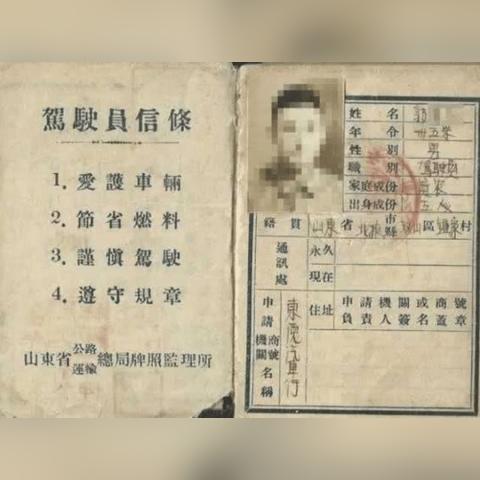 駕駛員信條
1. 愛護車輛
2. 節省燃料
3. 謹慎駕駛
4. 遵守規章
山東省公路運輸總局牌照監理所
姓名 郭
年令 卅五
性別 男
職別 駕駛員
家庭成份
出身成份 工人
籍貫 山東省 市縣 區 村
通訊處 永久
現在
申請機關商號名稱
住址
申請機關或商號
負責人簽名蓋章